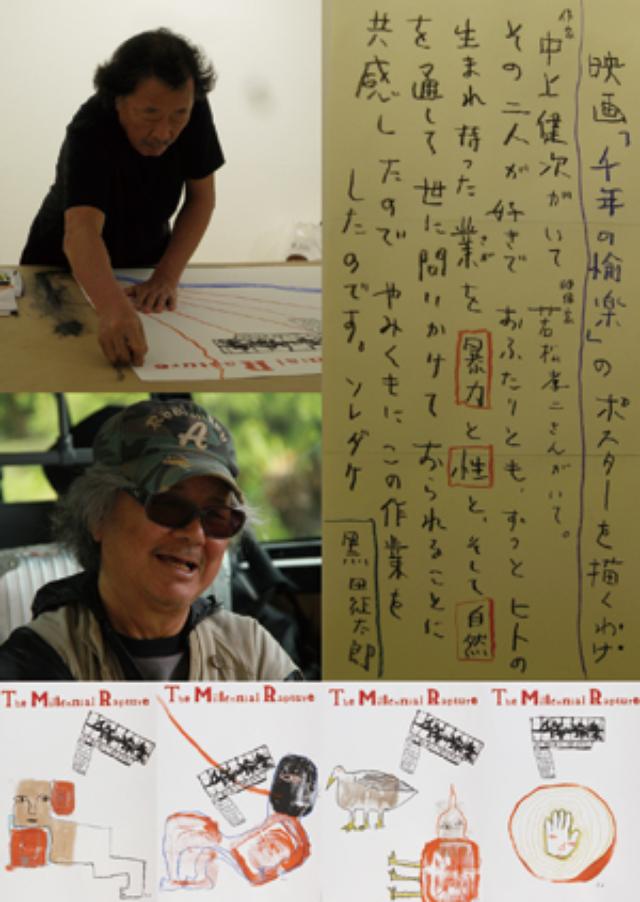 映画「千年の愉楽」のポスターを描くわけ。
作家
中上健次がいて
映像家
若松孝二さんがいて。
その二人が好きで おふたりとも、ずっと ヒトの
生まれ持った業を 暴力 と 性 と、そして 自然
さが
を通して 世に問いかけて おられることに
共感したので やみくもに この作業を
したのです。ソレダケ
黒田征太郎
nnial Rapture
A
The Millennial Rapture
The Millennial Rapture
The Millennial Rapture
The Millennial Rapture